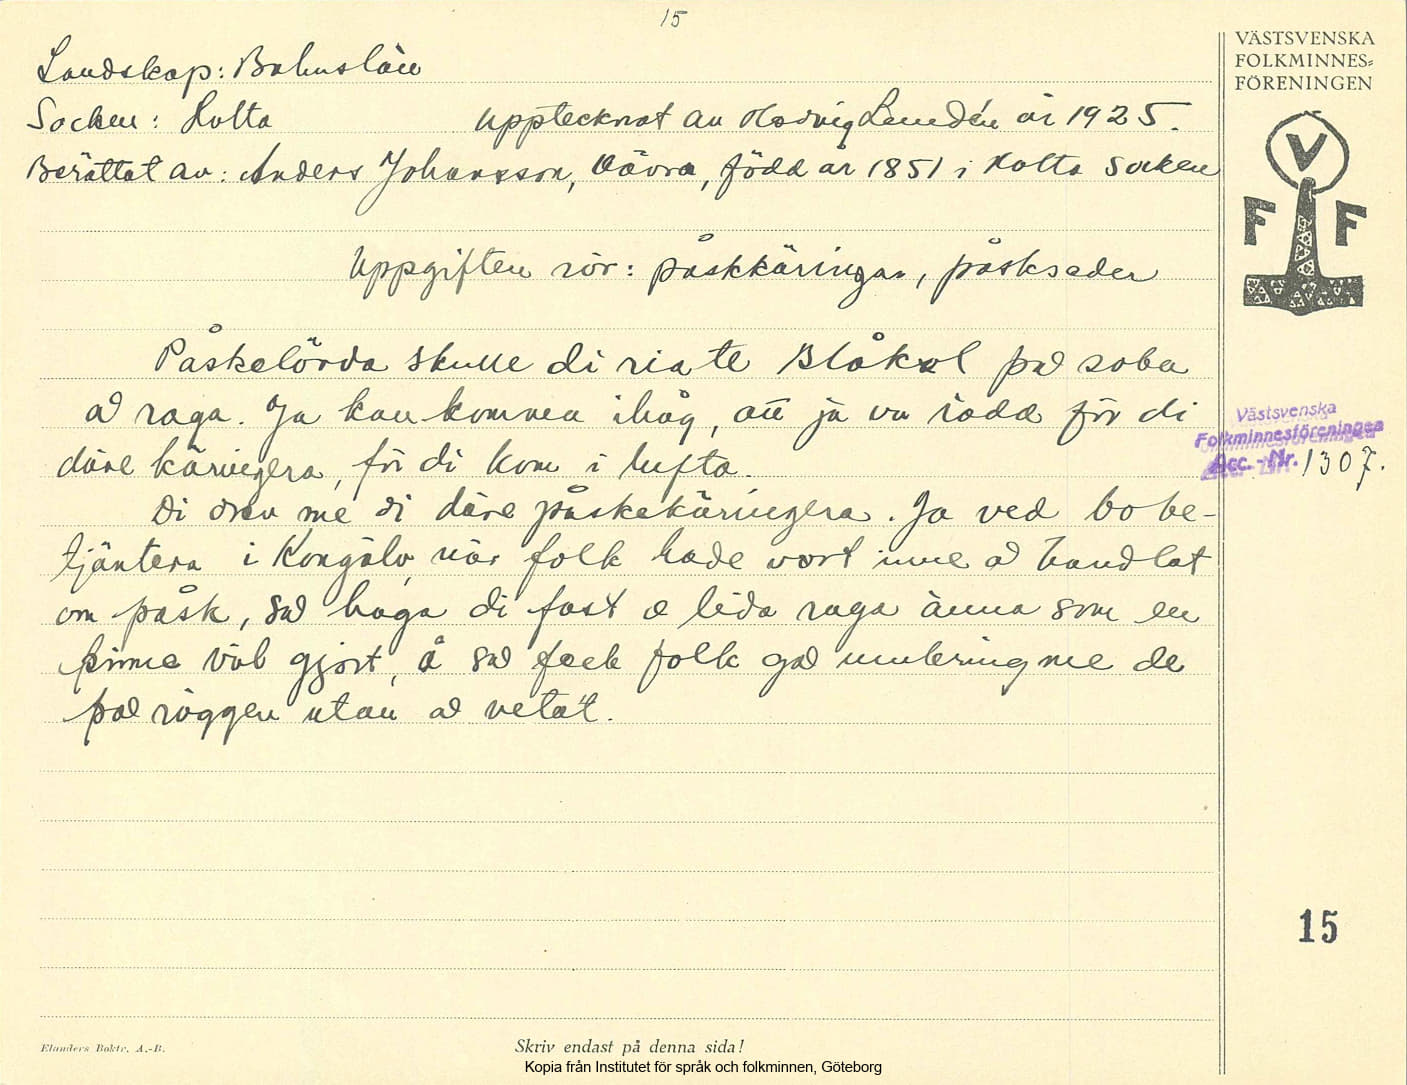 15
VÄSTSVENSKA
FOLKMINNES=
FÖRENINGEN
V
F F
Landskap: Bohuslän
Socken: Holta Upptecknat av Hedvig Lundén år 1925.
Berättat av: Anders Johansson, Vävra, född år 1851 i Holta Socken
Uppgiften rör: påskkäringar, påskseder
Påskelörda skulle di ria te Blåkol på soba
å raga. Ja kan komma ihåg, att ja va rädd för di
däre käringera, för di kom i lufta.
Di drev me di däre påskekäringera. Ja ved bobe-
tjäntera i Kongälv, när folk hade vart inne å handlat
om påsk, så haga di fast e lida raga änna som en
pinne väl gjort, å så feck folk gå umkring me de
på röggen utan å veta't.
Västsvenska
Folkminnesföreningen
Acc. - Nr. 1307.
15
Elanders Boktr. A.-B.
Skriv endast på denna sida!
Kopia från Institutet för språk och folkminnen, Göteborg